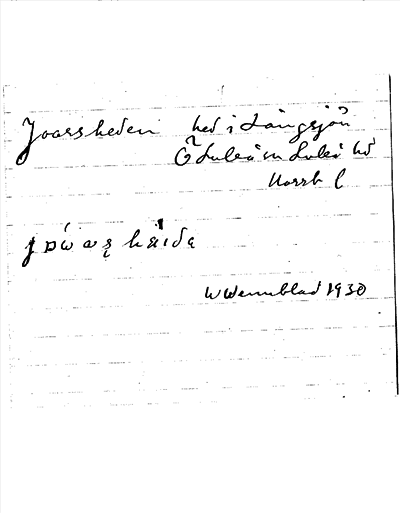 Joarsheden hed i Långsjön
Ö Luleå sn Luleå hd
Norrb l
W Wennblad 1930